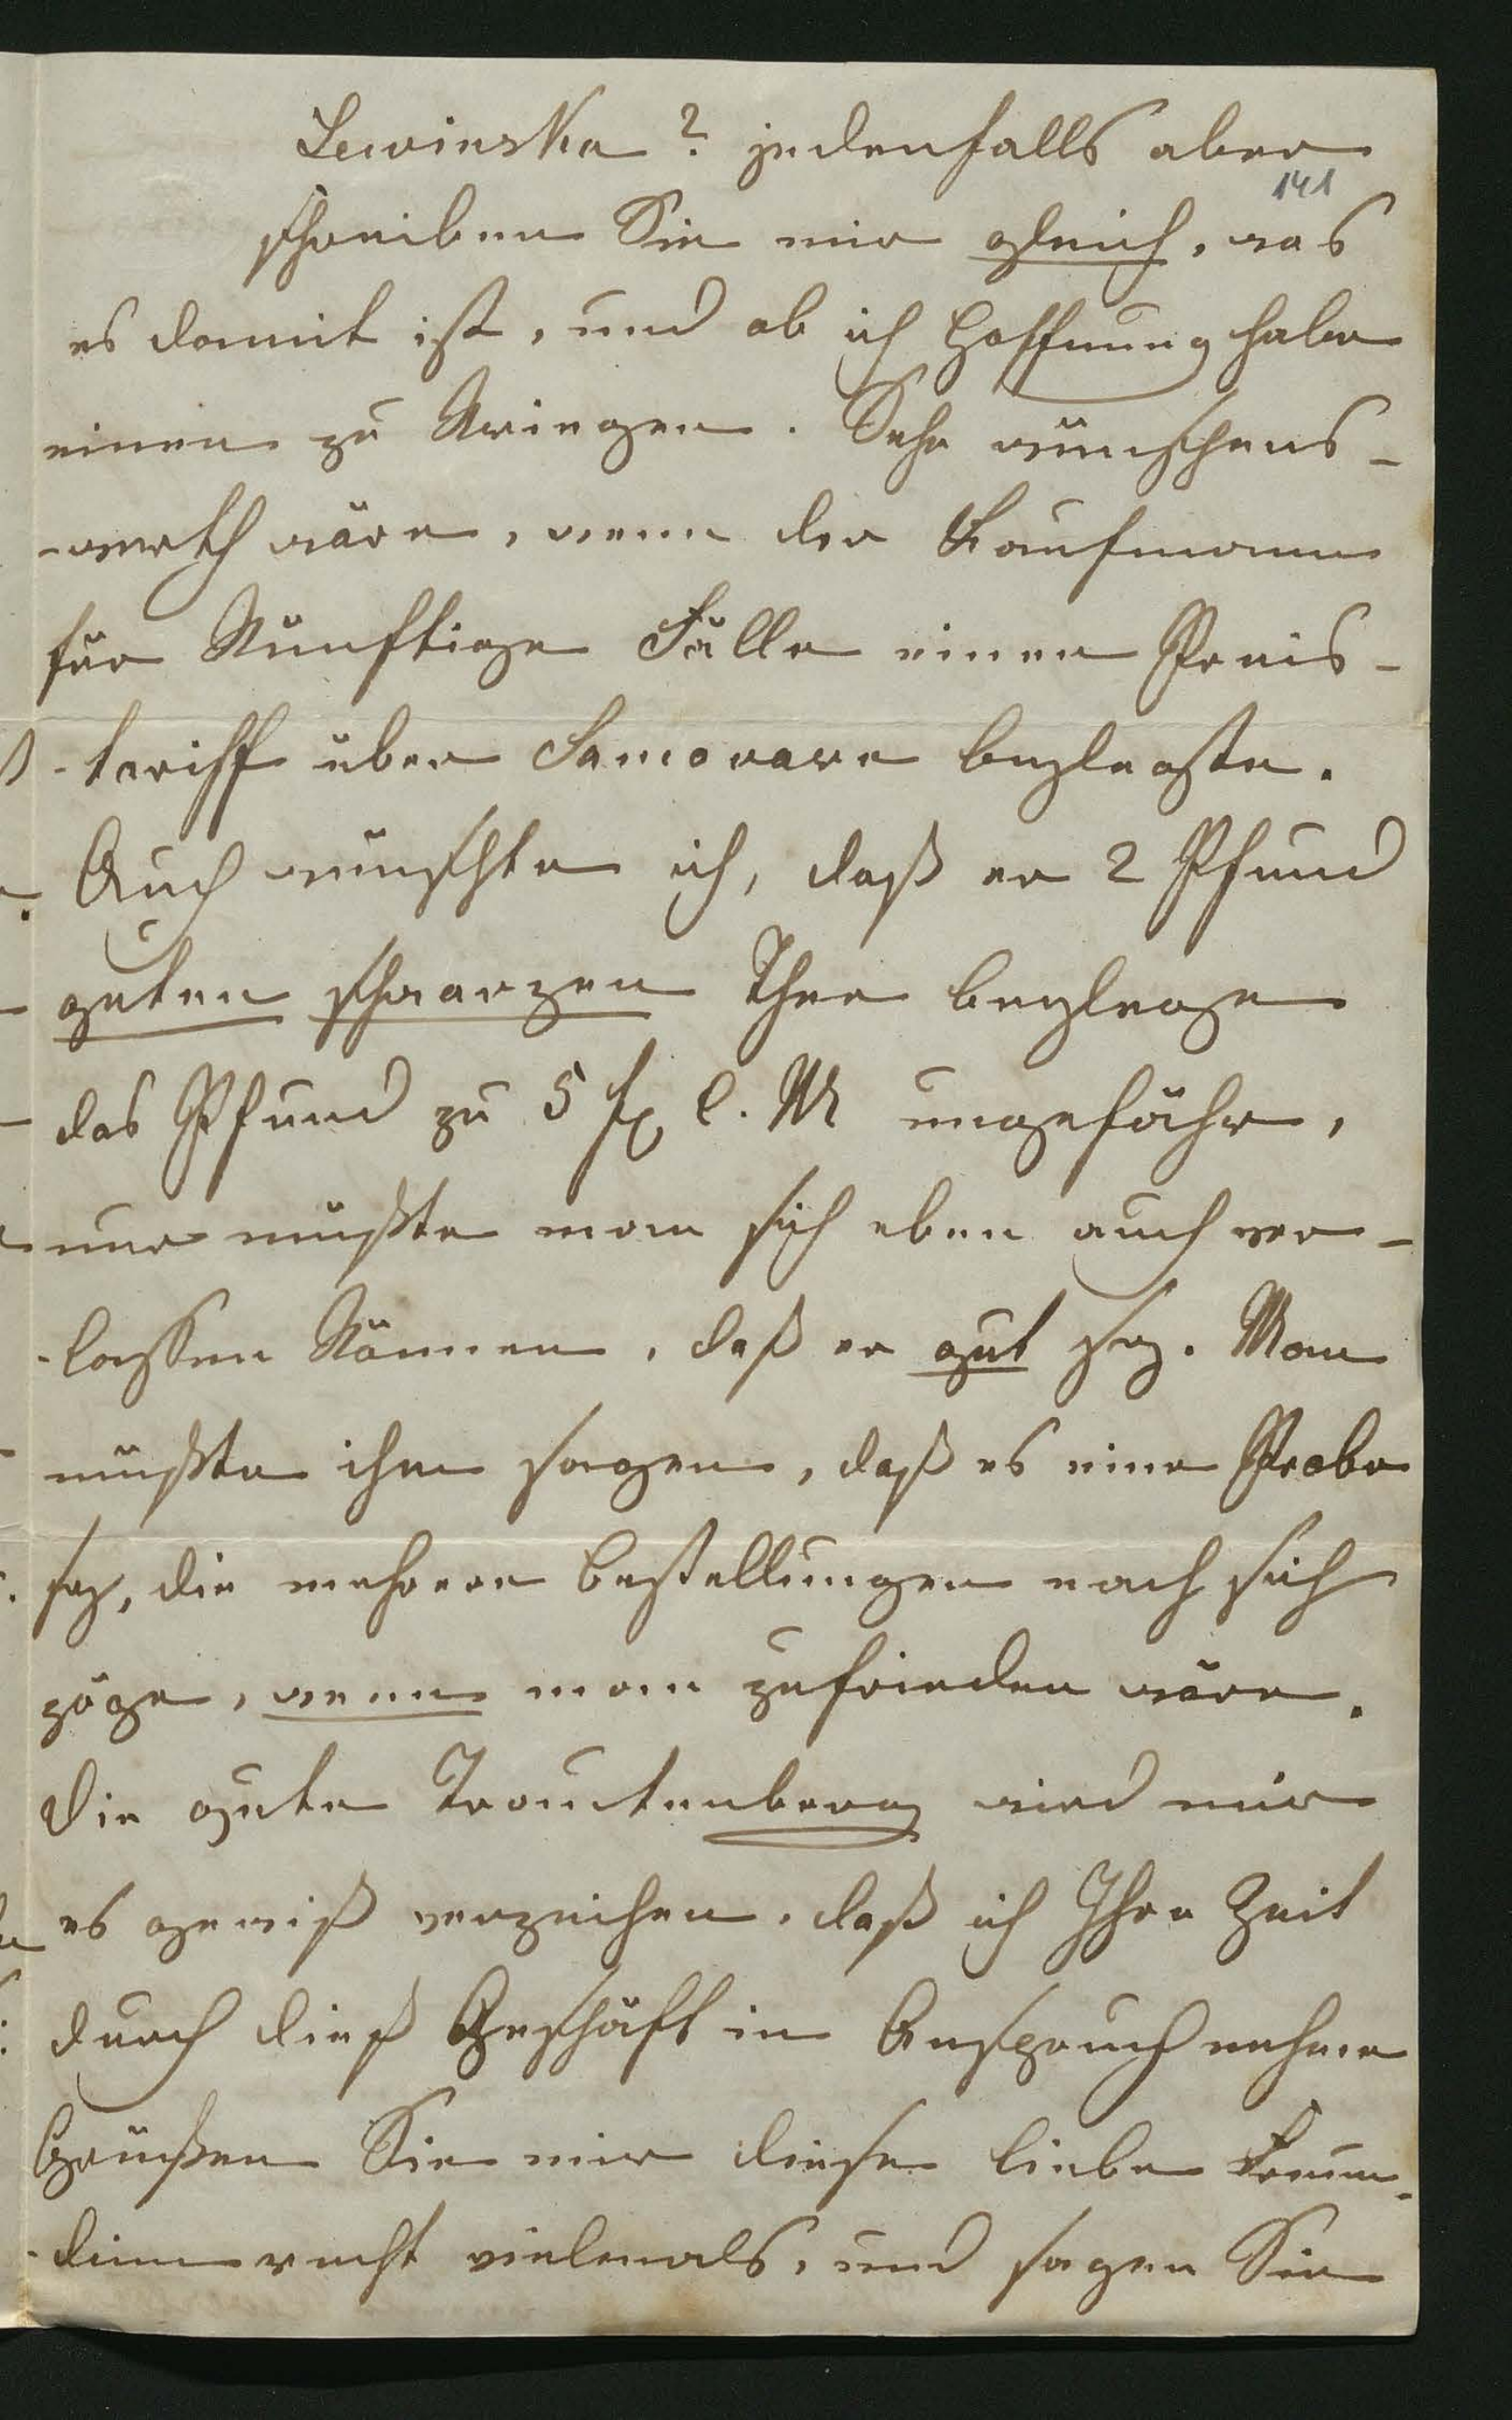 Lewinska? jedenfalls aber
141
schreiben Sie mir gleich, was
es damit ist, und ob ich Hoffnung habe
einen zu kriegen. Sehr wünschens-
-werth wäre, wenn der Kaufmann
für künftige Fälle einen Preis-
-tariff über Samovare beylegte.
Auch wünschte ich, daß er 2 Pfund
guten schwarzen Thee beylege
das Pfund zu 5 fl C. M ungefähr,
nur müßte man sich eben auch ver-
-lassen können, daß er gut sey. Man
müßte ihm sagen, daß es eine Probe
sey, die mehrere Bestellungen nach sich
zöge, wenn man zufrieden wäre.
Die gute Trauttenberg wird mir
es gewiß verzeihen, daß ich Ihre Zeit
durch dieß Geschäft in Anspruch nehme
Grüßen Sie mir diese liebe Freun-
-dinn recht vielmals, und sagen Sie